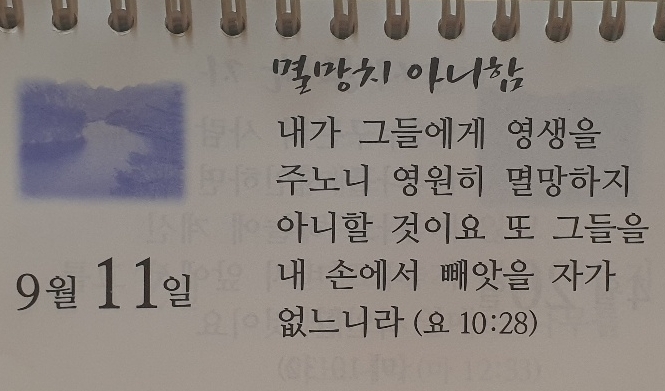 멸망치 아니함
내가 그들에게 영생을
주노니 영원히 멸망하지
아니할 것이요 또 그들을
내 손에서 빼앗을 자가
없느니라 (요 10:28)
9월 11일